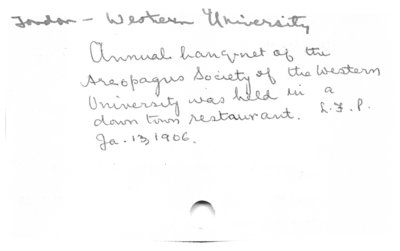 London - Western University
Annual banquet of the
Areopagus Society of the Western
University was held in a
down town restaurant. L.F.P.
Ja. 13, 1906.